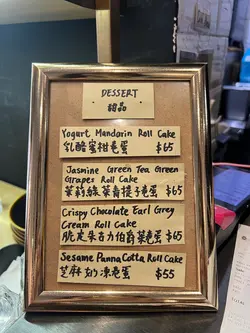 DESSERT
甜品
Yogurt Mandarin Roll Cake
乳酪蜜柑卷蛋 $65
Jasmine Green Tea Green
Grapes Roll Cake
茉莉綠茶青提子卷蛋 $65
Crispy Chocolate Earl Grey
Cream Roll Cake
脆皮朱古力伯爵茶卷蛋 $65
Sesame Panna Cotta Roll Cake
芝麻奶凍卷蛋 $55